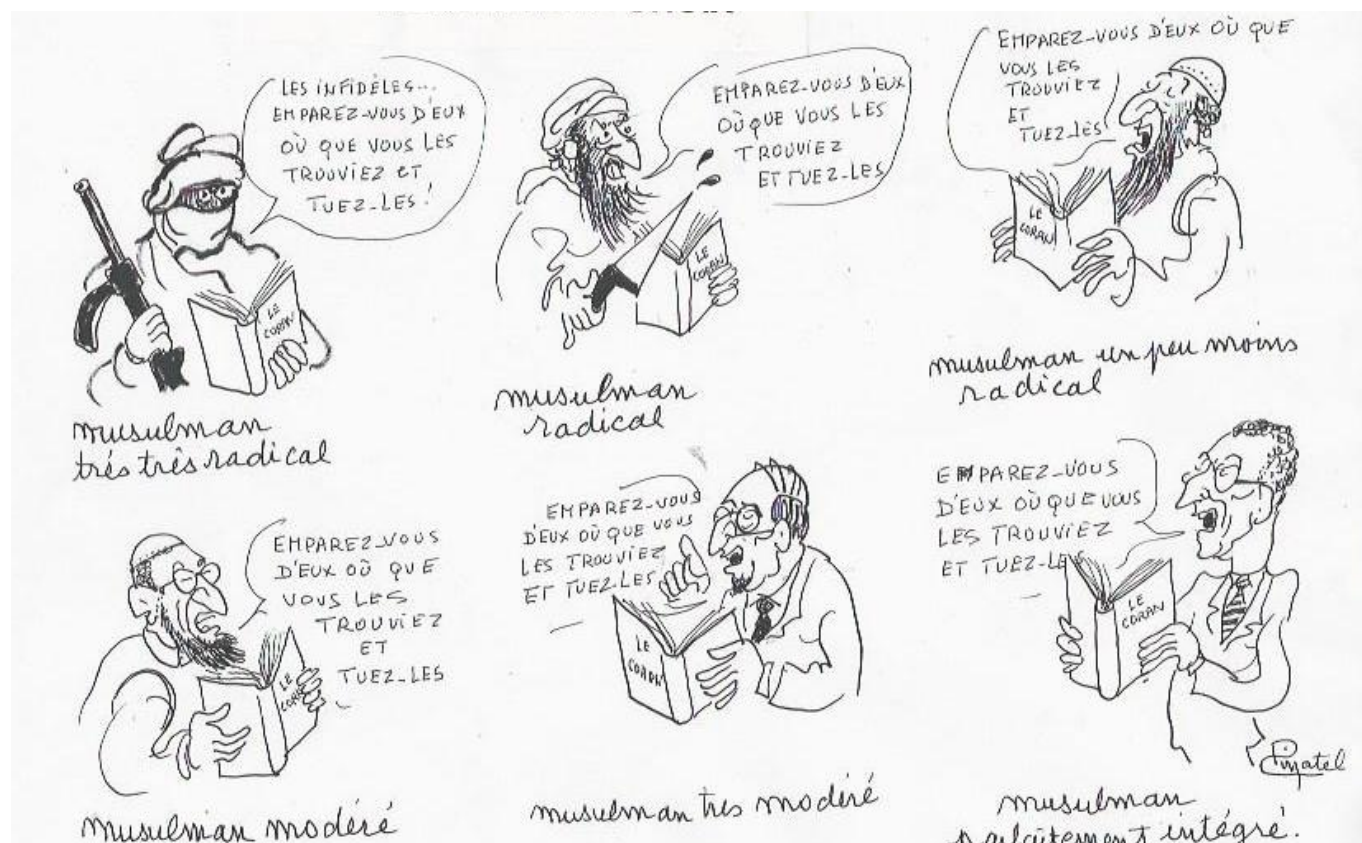 LES INFIDÈLES...
EMPAREZ-VOUS D'EUX
OÙ QUE VOUS LES
TROUVIEZ ET
TUEZ-LES !
LE
CORAN
musulman
trés très radical
EMPAREZ-VOUS D'EUX
OÙ QUE VOUS LES
TROUVIEZ
ET TUEZ-LES
LE
CORAN
musulman
radical
EMPAREZ-VOUS D'EUX OÙ QUE
VOUS LES
TROUVIEZ
ET
TUEZ-LES
LE
CORAN
musulman un peu moins
radical
EMPAREZ-VOUS
D'EUX OÙ QUE
VOUS LES
TROUVIEZ
ET
TUEZ-LES
LE
CORAN
musulman modéré
EMPAREZ-VOUS
D'EUX OÙ QUE VOUS
LES TROUVIEZ
ET TUEZ-LES
LE
CORAN
musulman tres modéré
EMPAREZ-VOUS
D'EUX OÙ QUE VOUS
LES TROUVIEZ
ET TUEZ-LES
LE
CORAN
Pinatel
musulman
parfaitement intégré.